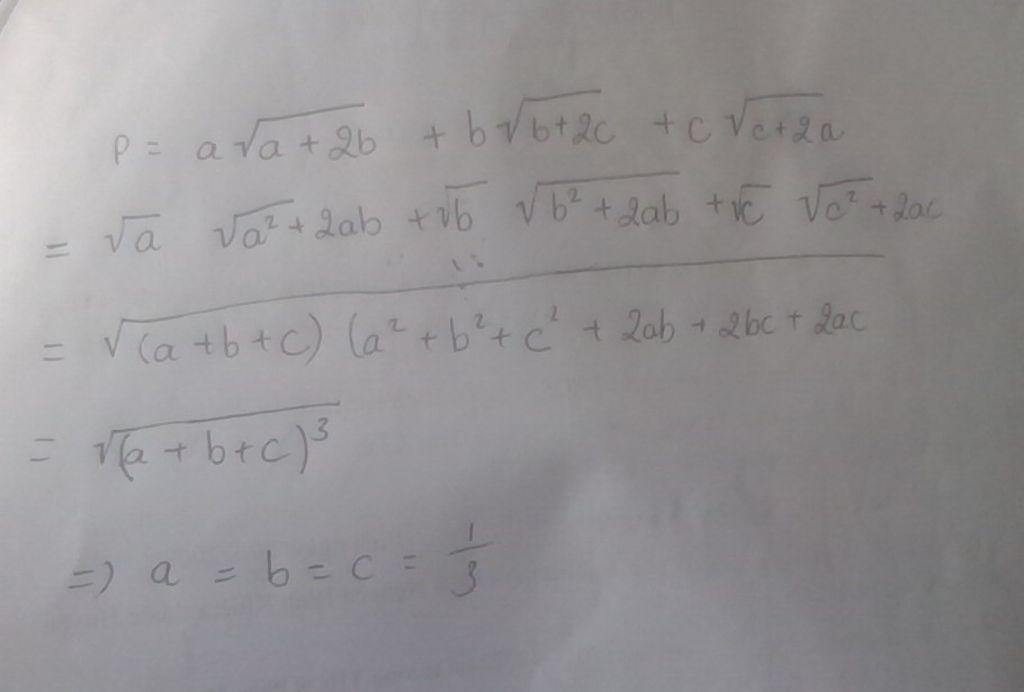 P = a √(a + 2b) + b √(b+2c) + c √(c+2a)
= √a √(a² + 2ab) + √b √(b² + 2ab) + √c √(c² + 2ac)
= √((a + b + c) (a² + b² + c² + 2ab + 2bc + 2ac
= √((a + b + c)³)
=) a = b = c = 1/3